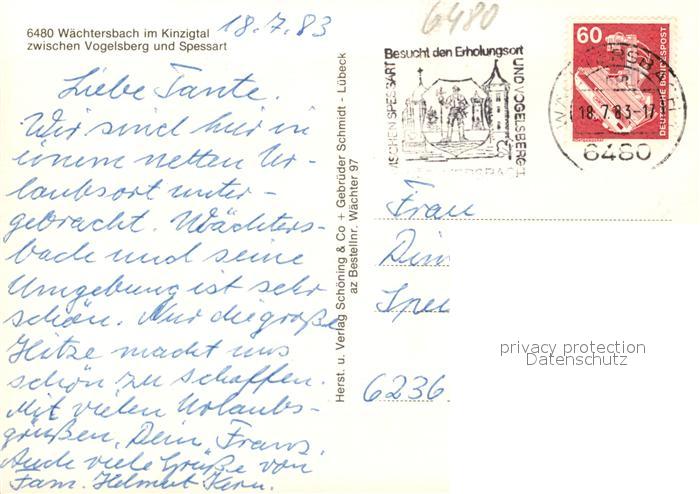 6480 Wächtersbach im Kinzigtal
zwischen Vogelsberg und Spessart
18.7.83
Liebe Tante.
Wir sind hier in
einem netten Ur-
laubsort unter-
gebracht. Wächters-
bach und seine
Umgebung ist sehr
schön. Nur die große
Hitze macht uns
schön zu schaffen.
Mit vielen Urlaubs-
grüßen, Dein Franz.
Auch viele Grüße von
Fam. Helmut Kern.
Herst. u. Verlag Schöning & Co + Gebrüder Schmidt - Lübeck
az Bestellnr. Wächter 97
6480
Besucht den Erholungsort
ZWISCHEN SPESSART
UND VOGELSBERG
60
DEUTSCHE BUNDESPOST
18.7.83-17
6480
Frau
6236
privacy protection
Datenschutz